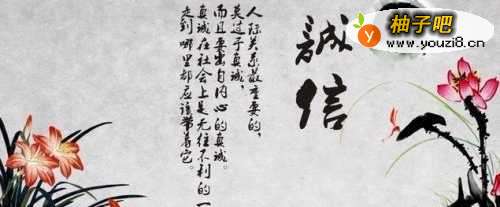 柚子吧
www.youzi8.cn
誠信
人际关系最重要的,
莫过于真诚,
而且要出自内心的真诚。
真诚在社会上是无往不利的一
走到哪里都应该带着它。